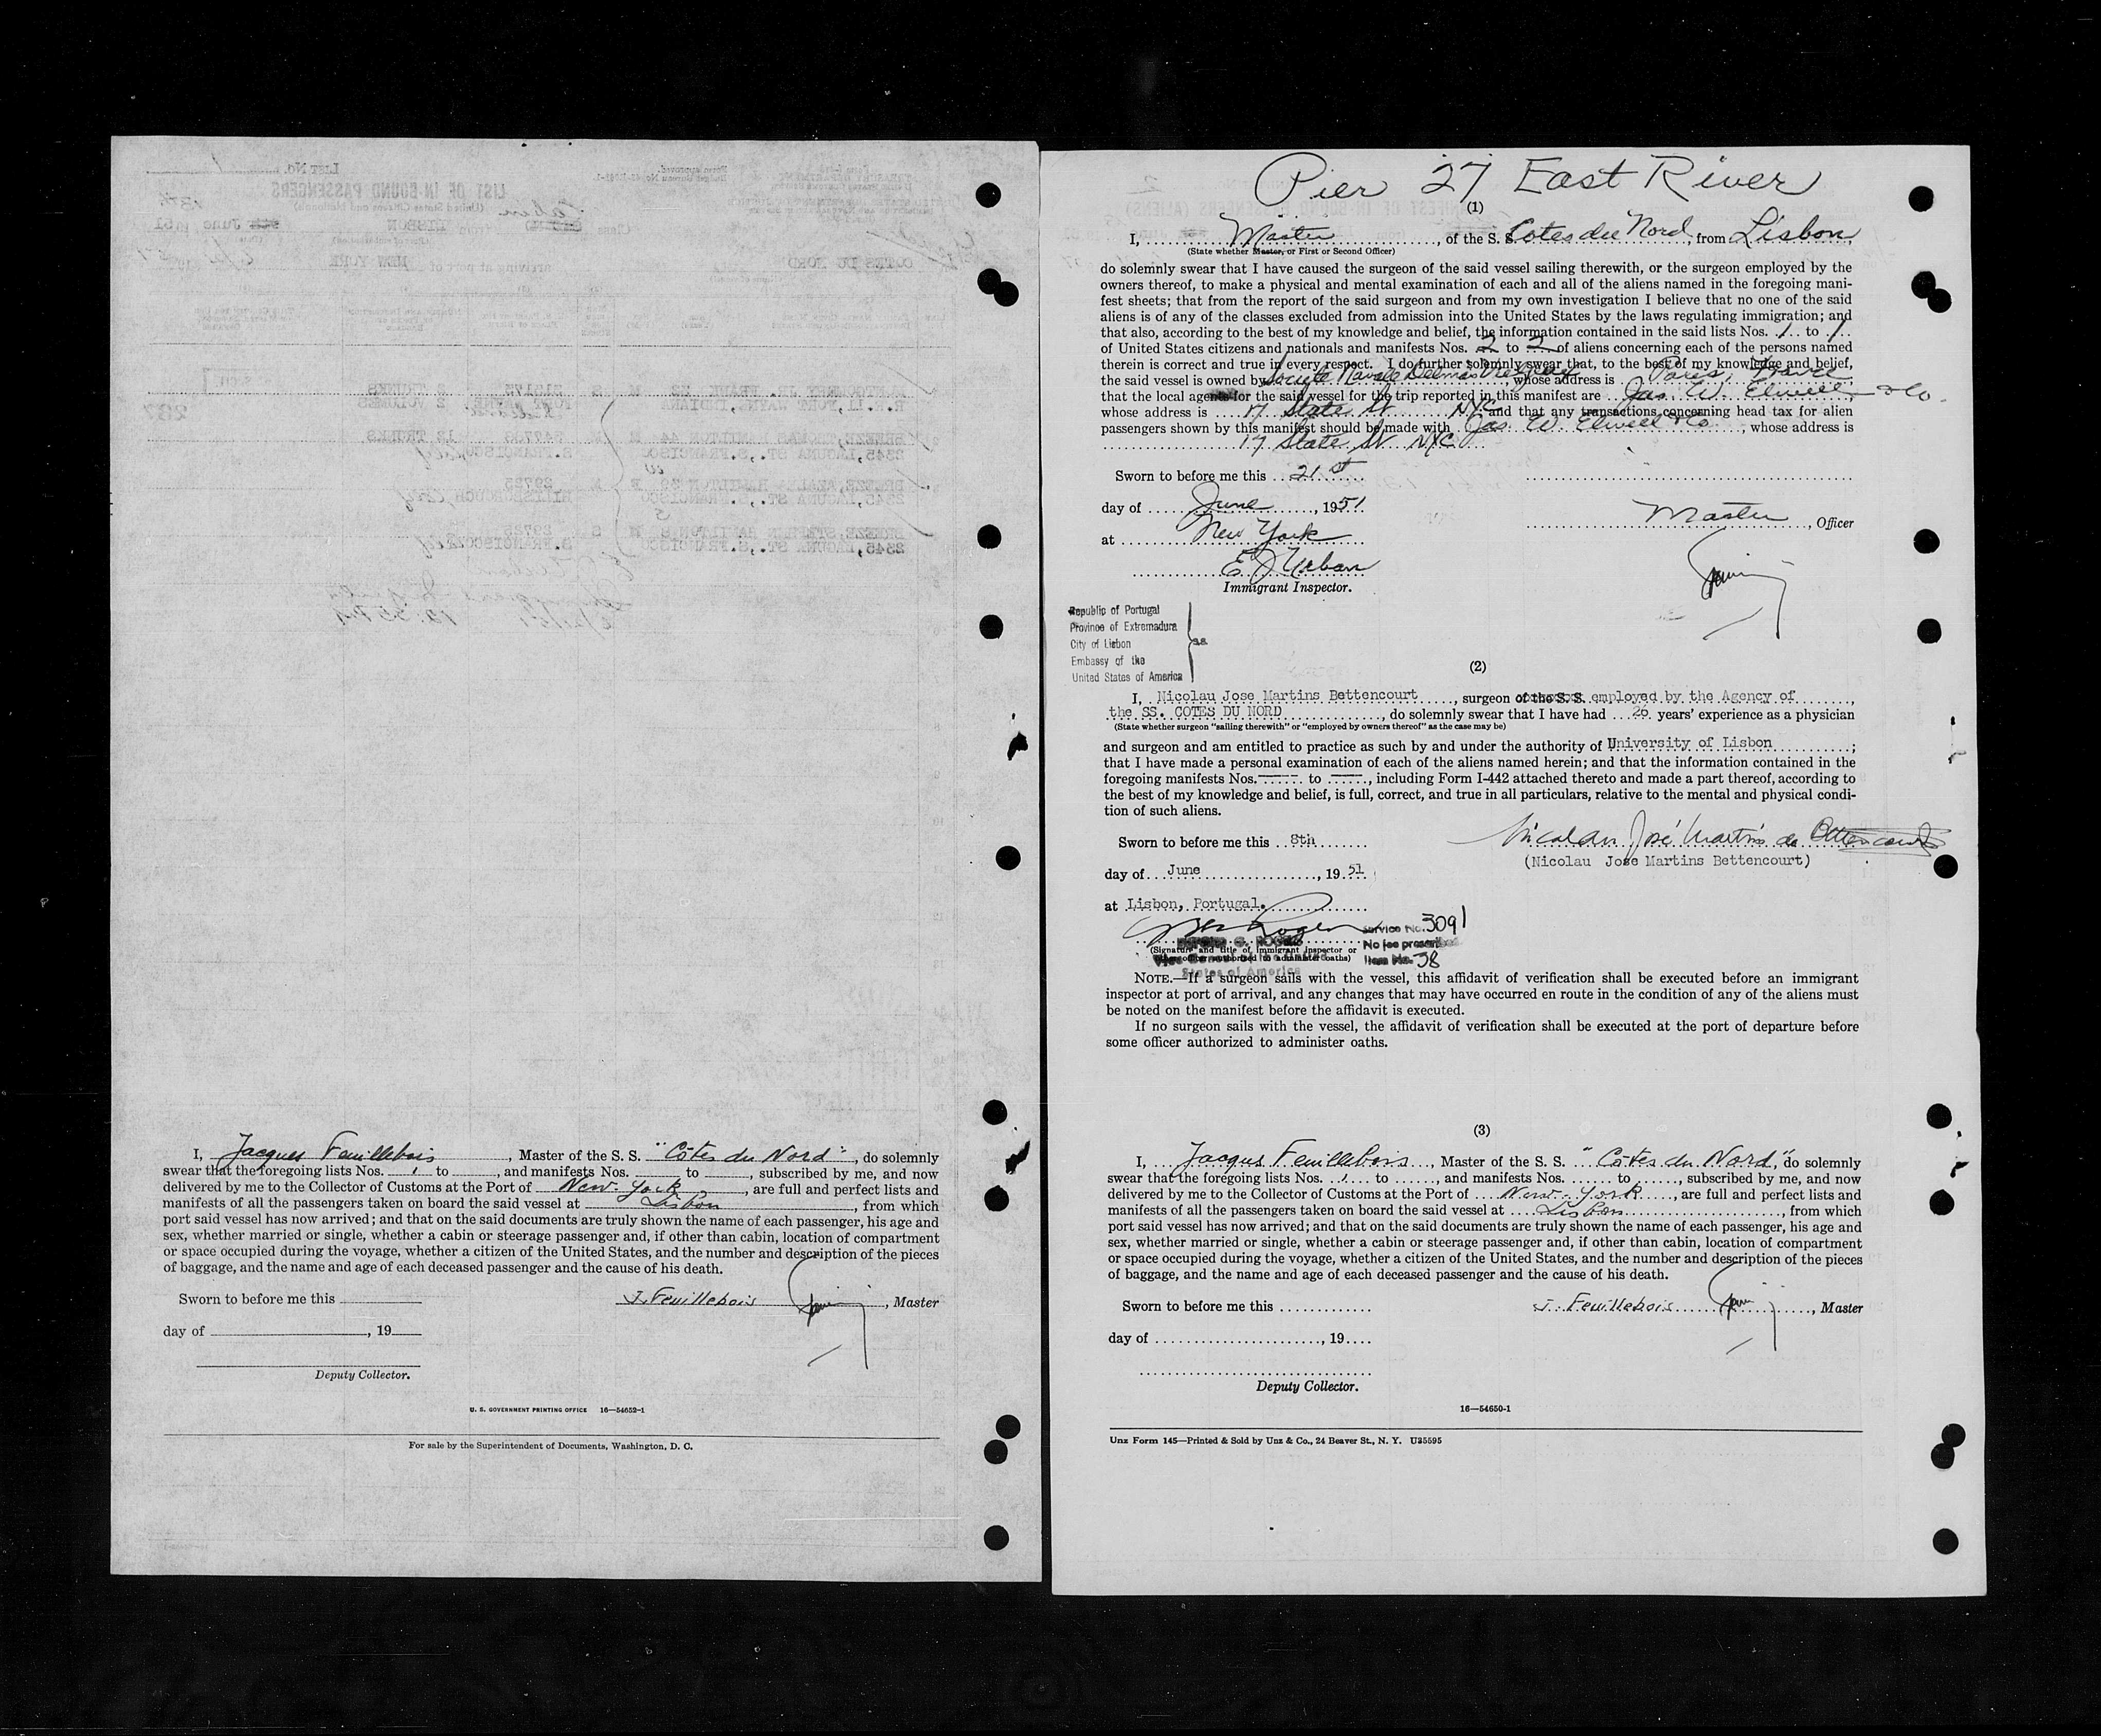 I, Jacques Feuillebois, Master of the S. S. "Côtes du Nord", do solemnly
swear that the foregoing lists Nos. 1 to , and manifests Nos. to , subscribed by me, and now
delivered by me to the Collector of Customs at the Port of New-York, are full and perfect lists and
manifests of all the passengers taken on board the said vessel at Lisbon, from which
port said vessel has now arrived; and that on the said documents are truly shown the name of each passenger, his age and
sex, whether married or single, whether a cabin or steerage passenger and, if other than cabin, location of compartment
or space occupied during the voyage, whether a citizen of the United States, and the number and description of the pieces
of baggage, and the name and age of each deceased passenger and the cause of his death.
Sworn to before me this
J. Feuillebois, Master
day of , 19
Deputy Collector.
U. S. GOVERNMENT PRINTING OFFICE 16—54652-1
For sale by the Superintendent of Documents, Washington, D. C.
Pier 27 East River
(1)
I, Master, of the S. S. Cotes du Nord, from Lisbon,
(State whether Master, or First or Second Officer)
do solemnly swear that I have caused the surgeon of the said vessel sailing therewith, or the surgeon employed by the
owners thereof, to make a physical and mental examination of each and all of the aliens named in the foregoing mani-
fest sheets; that from the report of the said surgeon and from my own investigation I believe that no one of the said
aliens is of any of the classes excluded from admission into the United States by the laws regulating immigration; and
that also, according to the best of my knowledge and belief, the information contained in the said lists Nos. 1 to 1
of United States citizens and nationals and manifests Nos. 2 to 2 of aliens concerning each of the persons named
therein is correct and true in every respect. I do further solemnly swear that, to the best of my knowledge and belief,
the said vessel is owned by Societe Navale Delmas Vieljeux, whose address is Paris, France,
that the local agents for the said vessel for the trip reported in this manifest are Jas. W. Elwell & Co.
whose address is 17 State St NYC and that any transactions concerning head tax for alien
passengers shown by this manifest should be made with Jas. W. Elwell & Co, whose address is
17 State St NYC
Sworn to before me this 21st
day of June, 1951
Master, Officer
at New York
E J Urban
Immigrant Inspector.
Republic of Portugal
Province of Extremadura
City of Lisbon
Embassy of the
United States of America
ss
(2)
I, Nicolau Jose Martins Bettencourt, surgeon of the S. S. employed by the Agency of
the SS. COTES DU NORD, do solemnly swear that I have had 26 years' experience as a physician
(State whether surgeon "sailing therewith" or "employed by owners thereof" as the case may be)
and surgeon and am entitled to practice as such by and under the authority of University of Lisbon;
that I have made a personal examination of each of the aliens named herein; and that the information contained in the
foregoing manifests Nos. —— to ——, including Form I-442 attached thereto and made a part thereof, according to
the best of my knowledge and belief, is full, correct, and true in all particulars, relative to the mental and physical condi-
tion of such aliens.
Sworn to before me this 8th
Nicolau José Martins de Bettencourt
(Nicolau Jose Martins Bettencourt)
day of June, 19 51
at Lisbon, Portugal.
Service No. 3091
No fee prescribed
Item No. 38
(Signature and title of immigrant inspector or
other officer authorized to administer oaths)
States of America
NOTE.—If a surgeon sails with the vessel, this affidavit of verification shall be executed before an immigrant
inspector at port of arrival, and any changes that may have occurred en route in the condition of any of the aliens must
be noted on the manifest before the affidavit is executed.
If no surgeon sails with the vessel, the affidavit of verification shall be executed at the port of departure before
some officer authorized to administer oaths.
(3)
I, Jacques Feuillebois, Master of the S. S. "Côtes du Nord," do solemnly
swear that the foregoing lists Nos. 1 to , and manifests Nos. to , subscribed by me, and now
delivered by me to the Collector of Customs at the Port of New-York, are full and perfect lists and
manifests of all the passengers taken on board the said vessel at Lisbon, from which
port said vessel has now arrived; and that on the said documents are truly shown the name of each passenger, his age and
sex, whether married or single, whether a cabin or steerage passenger and, if other than cabin, location of compartment
or space occupied during the voyage, whether a citizen of the United States, and the number and description of the pieces
of baggage, and the name and age of each deceased passenger and the cause of his death.
Sworn to before me this
J. Feuillebois, Master
day of , 19
Deputy Collector.
16—54650-1
Unz Form 145—Printed & Sold by Unz & Co., 24 Beaver St., N. Y. U35595